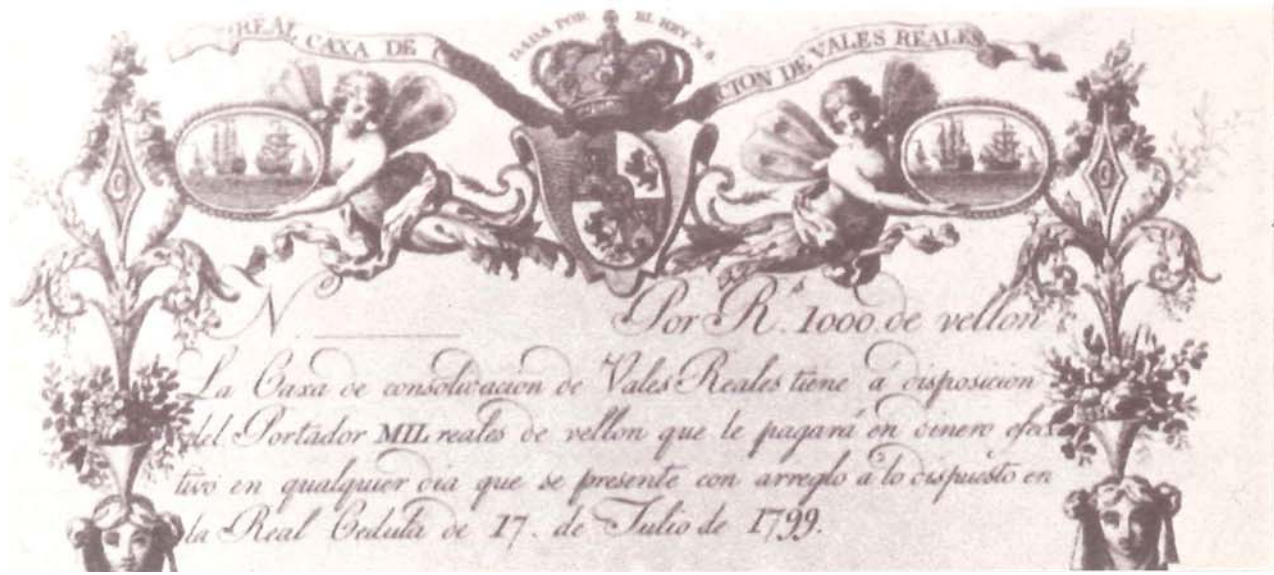 REAL CAXA DE C
DADA POR EL REY N. S.
CION DE VALES REALES
9
9
N. Por R.s 1000 de vellon
La Caxa de consolidacion de Vales Reales tiene á disposicion
del Portador MIL reales de vellon que le pagará en dinero efec
tivo en qualquier dia que se presente con arreglo á lo dispuesto en
la Real Cedula de 17. de Julio de 1799.